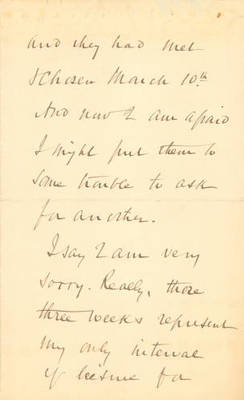 and they had met
& chosen March 10th
And now I am afraid
I might put them to
some trouble to ask
for another.
I say I am very
sorry. Really, those
three weeks represent
my only interval
of leisure for